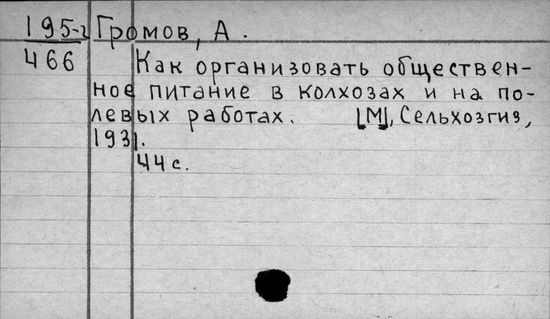 195-2 Громов, А.
466 Как организовать обществен-
ное питание в колхозах и на по-
левых работах. [М], Сельхозгиз,
1931.
44 с.